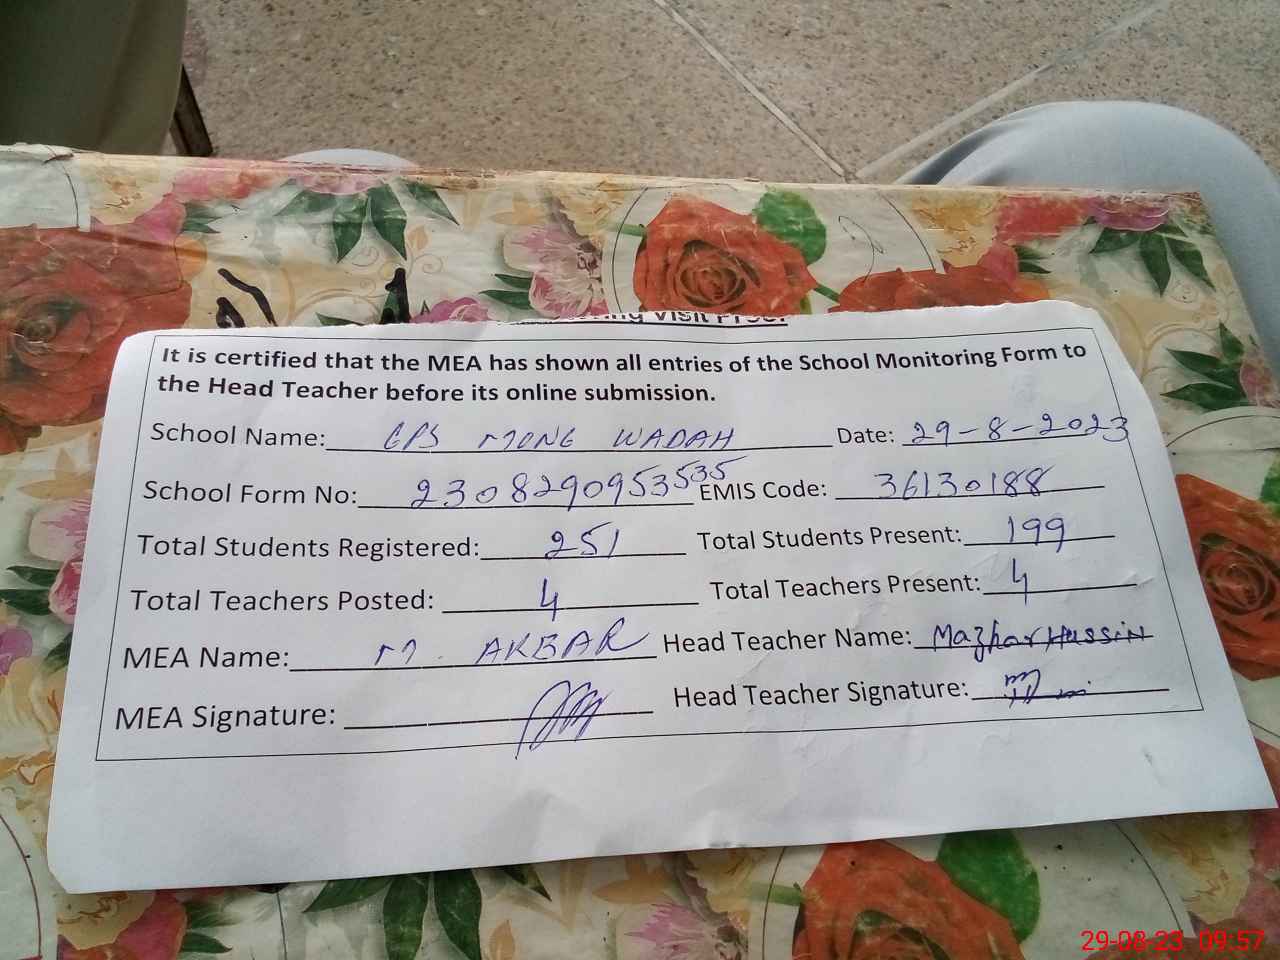 Visit Proof
It is certified that the MEA has shown all entries of the School Monitoring Form to
the Head Teacher before its online submission.
School Name: GPS MONG WADAH Date: 29-8-2023
School Form No: 230829095353535 EMIS Code: 36130188
Total Students Registered: 251 Total Students Present: 199
Total Teachers Posted: 4 Total Teachers Present: 4
MEA Name: M. AKBAR Head Teacher Name: Mazhar Hussin
MEA Signature: Head Teacher Signature:
29-08-23 09:57